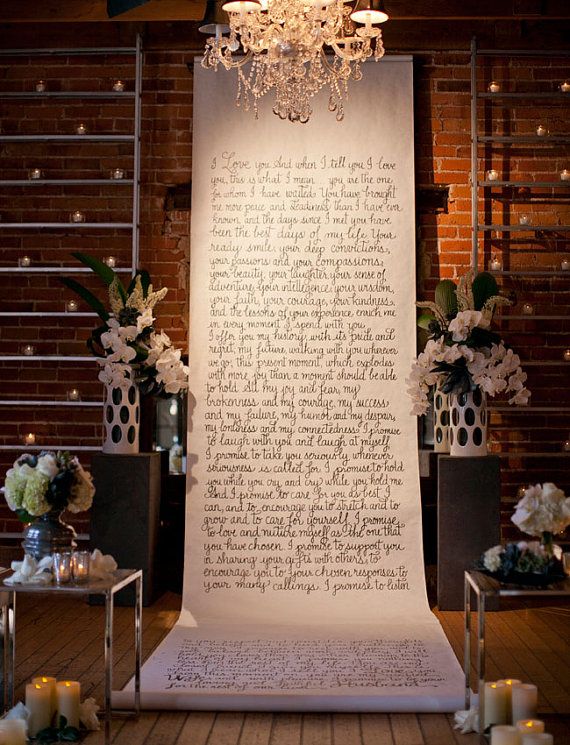 I Love you And when I tell you I love
you, this is what I mean... you are the one
for whom I have waited. You have brought
me more peace and steadiness than I have ever
known, and the days since I met you have
been the best days of my life. Your
ready smile, your deep convictions,
your passions and your compassions,
your beauty, your laughter, your sense of
adventure, your intelligence, your wisdom,
your faith, your courage, your kindness,
and the lessons of your experience, enrich me
in every moment I spend with you.
I offer you my history, with its pride and
regret, my future, walking with you wherever
we go, this present moment, which explodes
with more joy than a moment should be able
to hold. All my joy and fear, my
brokenness and my courage, my success
and my failure, my humor and my despair,
my loneliness and my connectedness. I promise
to laugh with you and laugh at myself.
I promise to take you seriously whenever
seriousness is called for. I promise to hold
you while you cry and cry while you hold me.
And I promise to care for you as best I
can, and to encourage you to stretch and to
grow and to care for yourself. I promise
to love and nurture myself as the one that
you have chosen. I promise to support you
in sharing your gifts with others, to
encourage you to your chosen responses to
your many callings. I promise to listen